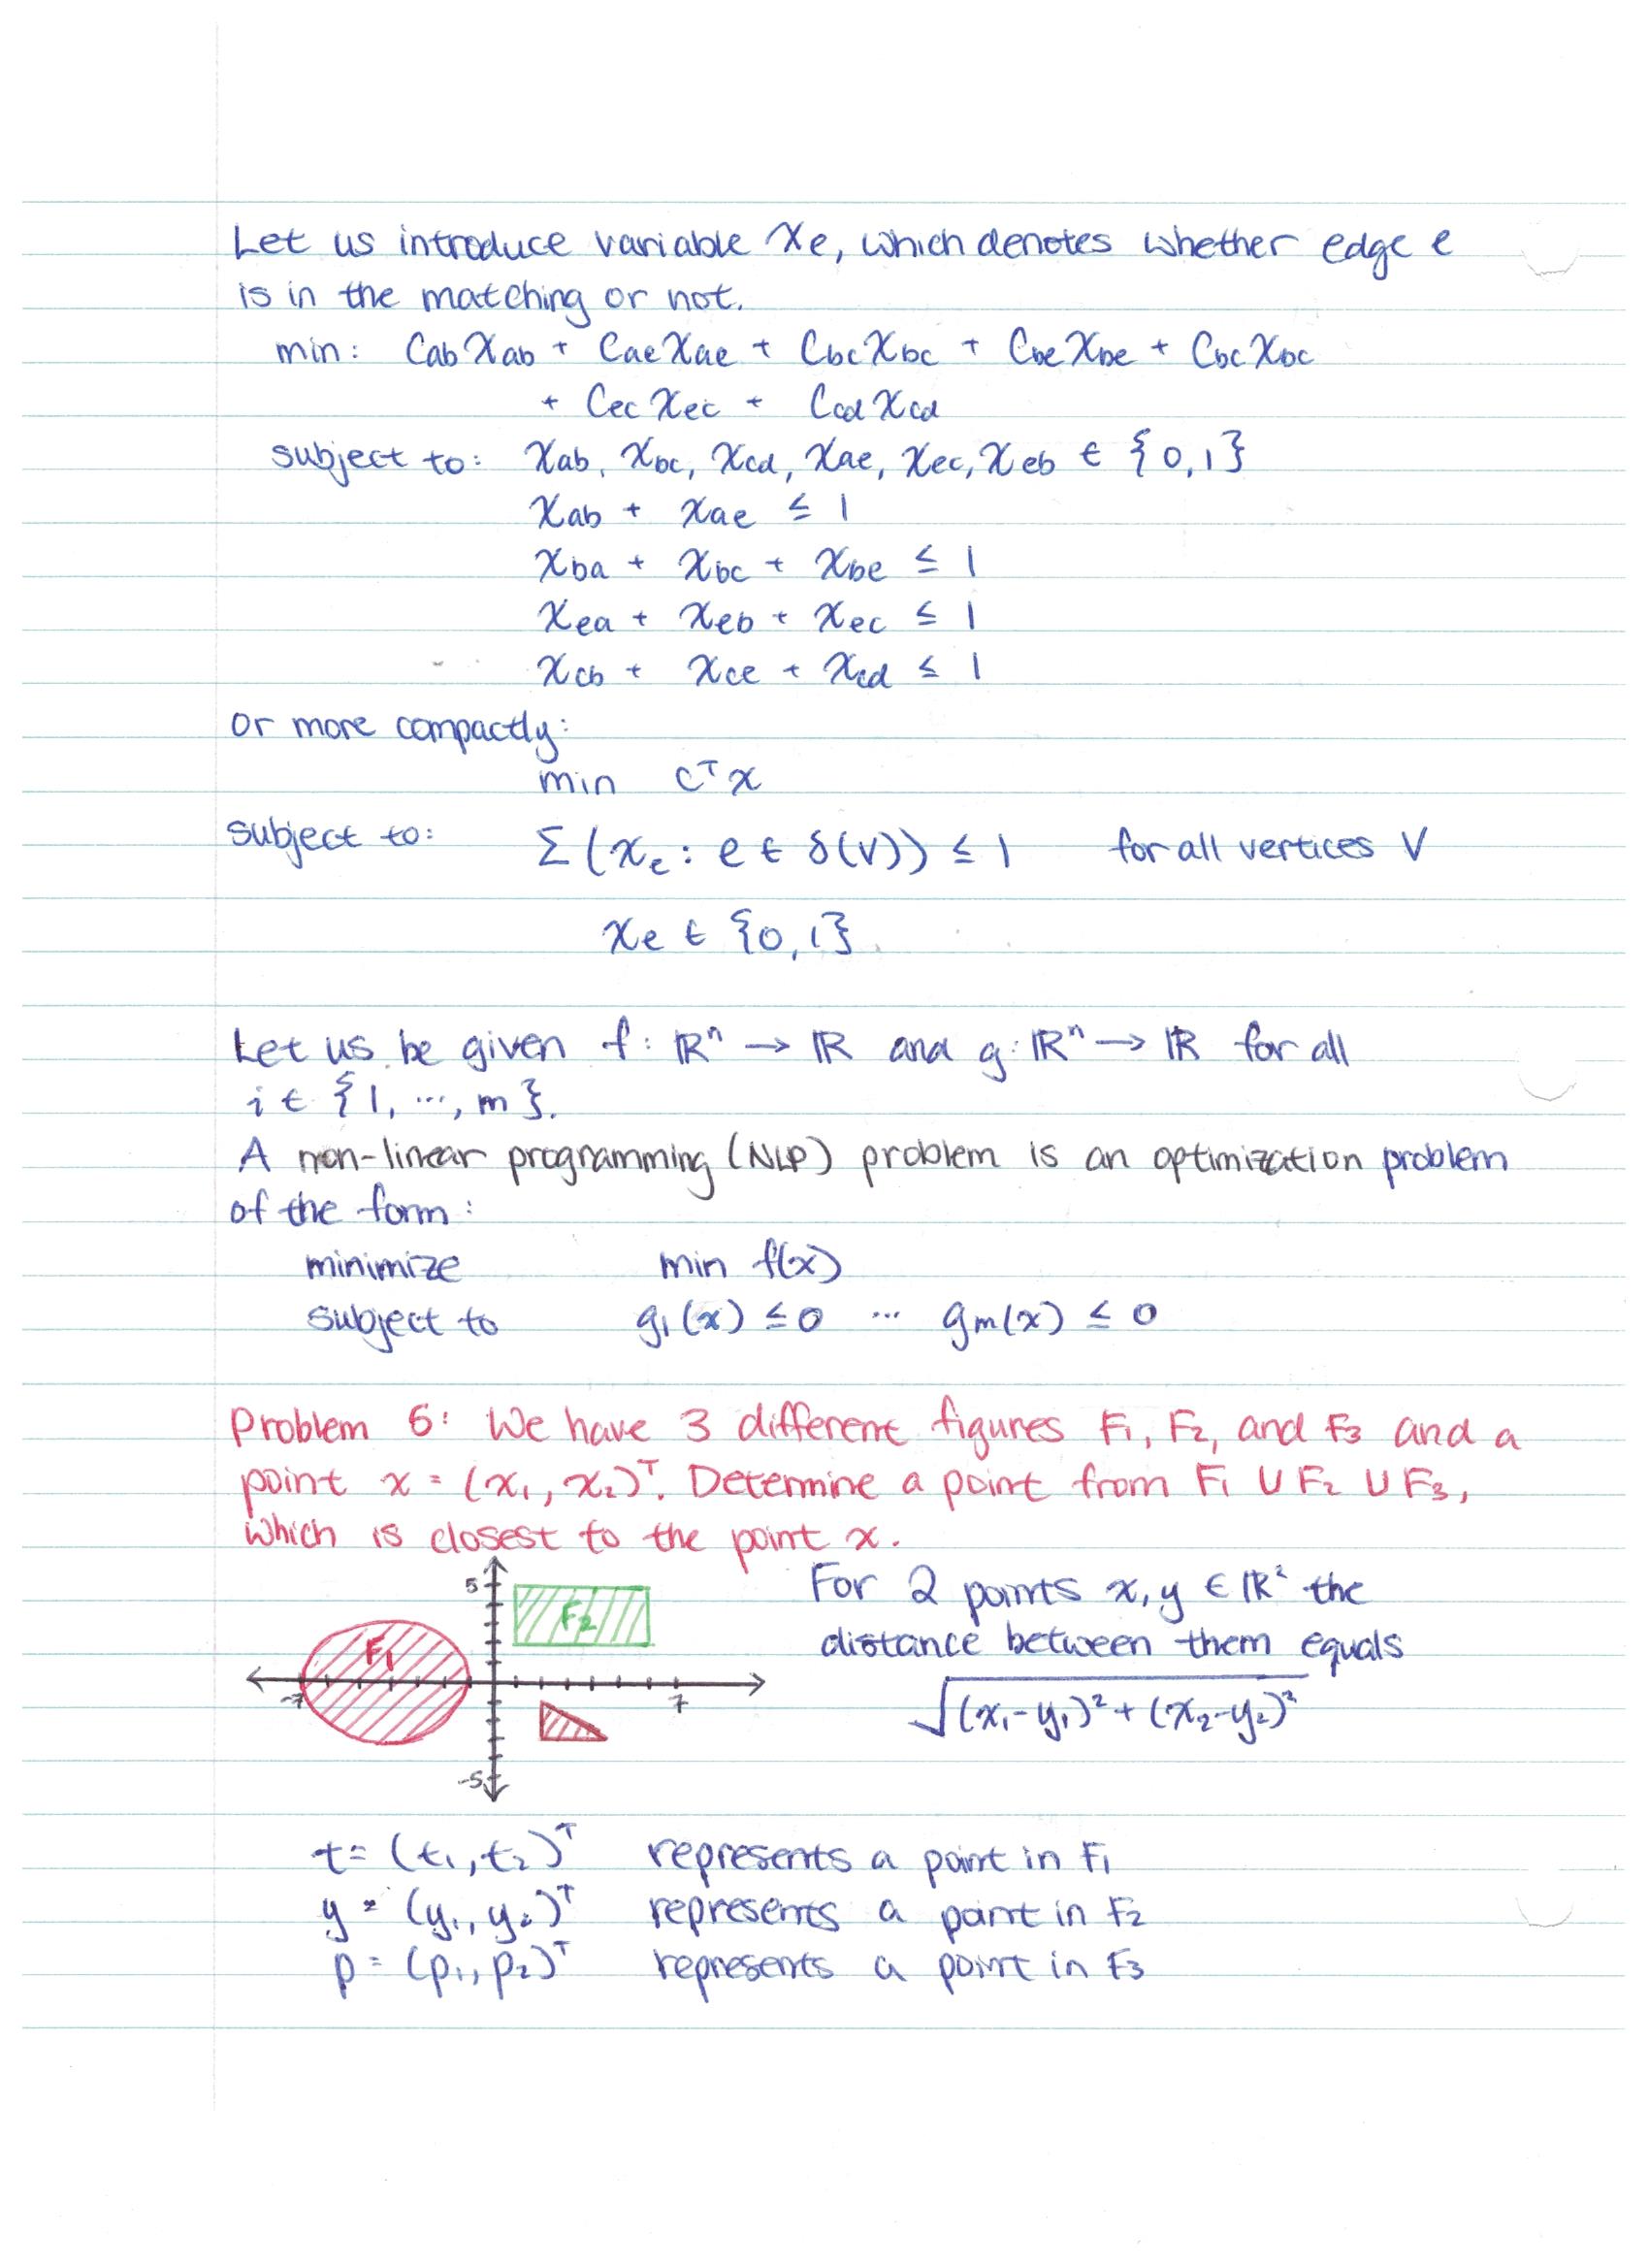 Let us introduce variable xe, which denotes whether edge e
is in the matching or not.
min: Cab Xab + Cae Xae + Cbc Xbc + Cbe Xbe + Cbc Xbc
+ Cec Xec + Ccd Xcd
subject to: Xab, Xbc, Xcd, Xae, Xec, Xeb ∈ {0,1}
Xab + Xae ≤ 1
Xba + Xbc + Xbe ≤ 1
Xea + Xeb + Xec ≤ 1
Xcb + Xce + Xcd ≤ 1
or more compactly:
min cᵀx
subject to: Σ(xe: e ∈ δ(V)) ≤ 1 for all vertices V
xe ∈ {0,1}.
Let us be given f: ℝⁿ → ℝ and g: ℝⁿ → ℝ for all
i ∈ {1, ..., m}.
A non-linear programming (NLP) problem is an optimization problem
of the form:
minimize min f(x)
subject to g₁(x) ≤ 0 ... gm(x) ≤ 0
Problem 6: We have 3 different figures F₁, F₂, and F₃ and a
point x = (x₁, x₂)ᵀ. Determine a point from F₁ ∪ F₂ ∪ F₃,
which is closest to the point x.
5
F₂
F₁
-7
7
-5
For 2 points x, y ∈ ℝ² the
distance between them equals
√(x₁-y₁)² + (x₂-y₂)²
t = (t₁, t₂)ᵀ represents a point in F₁
y = (y₁, y₂)ᵀ represents a point in F₂
p = (p₁, p₂)ᵀ represents a point in F₃